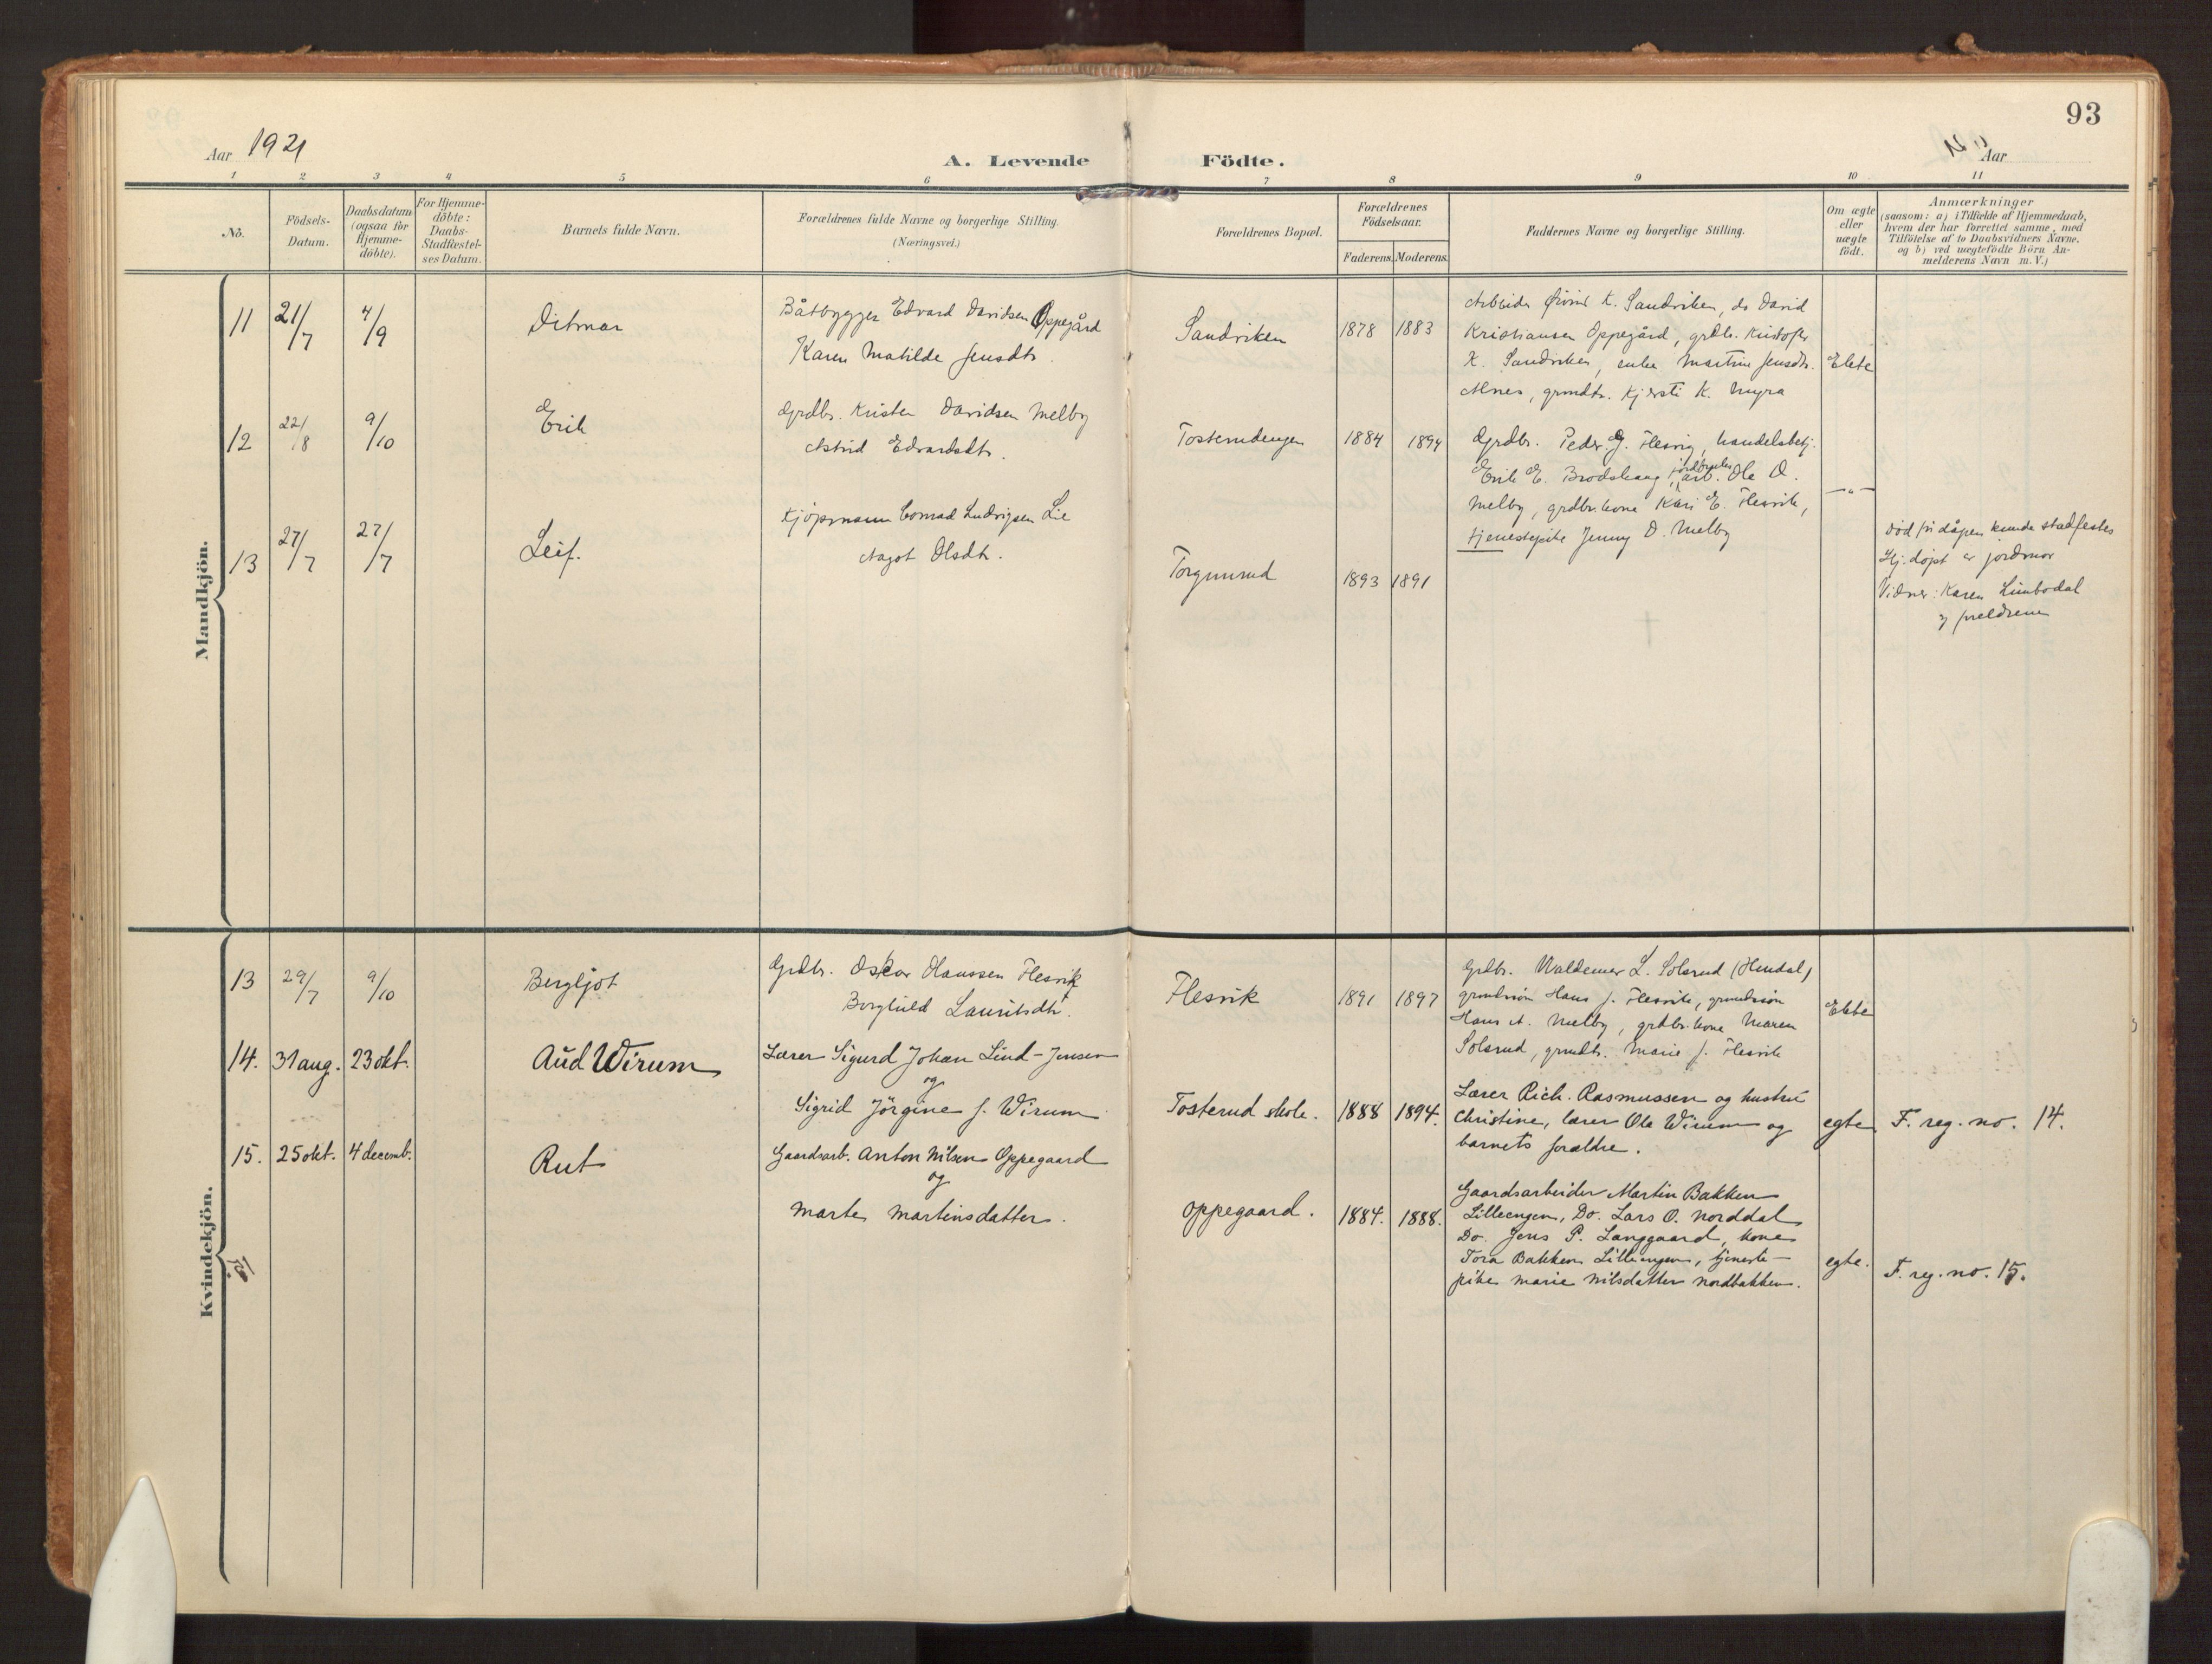 93
Aar 1921
A. Levende Födte.
Aar
1 2 3 4 5 6 7 8 9 10 11
No.
Födsels-
Datum.
Daabsdatum
(ogsaa for
Hjemme-
döbte).
For Hjemme-
döbte:
Daabs-
Stadfæstel-
ses Datum.
Barnets fulde Navn.
Forældrenes fulde Navne og borgerlige Stilling.
(Næringsvei.)
Forældrenes Bopæl.
Forældrenes
Födselsaar.
Faderens. Moderens.
Faddernes Navne og borgerlige Stilling.
Om ægte
eller
uægte
födt.
Anmærkninger
(saasom: a) i Tilfælde af Hjemmedaab,
hvem der har forrettet samme, med
Tilföielse af to Daabsvidners Navne.
og b) ved uægtefödte Börn An-
melderens Navn m. V.)
Mandkjön.
11
21/7
4/9
Ditmar
Båtbygger Edvard Davidsen Oppegård
Karen Matilde Jensdtr.
Sandviken
1878
1883
Arbeider Øivind K. Sandviken, do David
Kristiansen Oppegård, grdbr. Kristoffer
K. Sandviken, enke Martine Jensdtr.
Alnes, grmdtr. Kjersti K. Myra
Ekte
12
22/8
9/10
Erik
Grdbr. Kristen Davidsen Melby
Astrid Edvardsdtr.
Tosterudengen
1884
1894
Grdbr. Peder G. Flesvig, handelsbetj.
Erik E. Brodshaug, jordbruks arb. Ole D.
Melby, grdbr. kone Kari E. Flesvik,
tjenestepike Jenny D. Melby
—"—
13
27/7
27/7
Leif.
Kjøpmann Conrad Ludvigsen Lie
Aagot Olsdtr.
Torgunrud
1893
1891
†
Død før dåpen kunde stadfestes
Hj. døpt av jordmor
Vidner: Karen Limbodal
og foreldrene
Kvindekjön.
13
29/7
9/10
Bergljot
Grdbr. Oskar Hanssen Flesvik
Borghild Lauritsdtr.
Flesvik
1891
1897
Grdbr. Waldemar L. Solsrud (Hendal)
grmdssøn Hans J. Flesvik, grmdssøn
Hans A. Melby, grdbr. kone Maren
Solsrud, grmdtr. Marie J. Flesvik
Ekte
14.
31 aug.
23 okt.
Aud Wirum
Lærer Sigurd Johan Lind-Jensen
og
Sigrid Jörgine f. Wirum
Tosterud skole.
1888
1894.
Lærer Rich. Rasmussen og hustru
Christine, lærer Ole Wirum og
barnets forældre.
egte
F. reg. no. 14.
15.
25 okt.
4 decemb.
Rut
Gaardsarb. Anton Nilsen Oppegaard
og
Marte Martinsdatter.
Oppegaard.
1884.
1888.
Gaardsarbeider Martin Bakken
Lilleengen, Do. Lars O. Norddal
Do. Jens P. Langgaard, kone
Tora Bakken Lilleengen, tjeneste-
pike Marie Nilsdatter Nordbakken.
egte.
F. reg. no. 15.